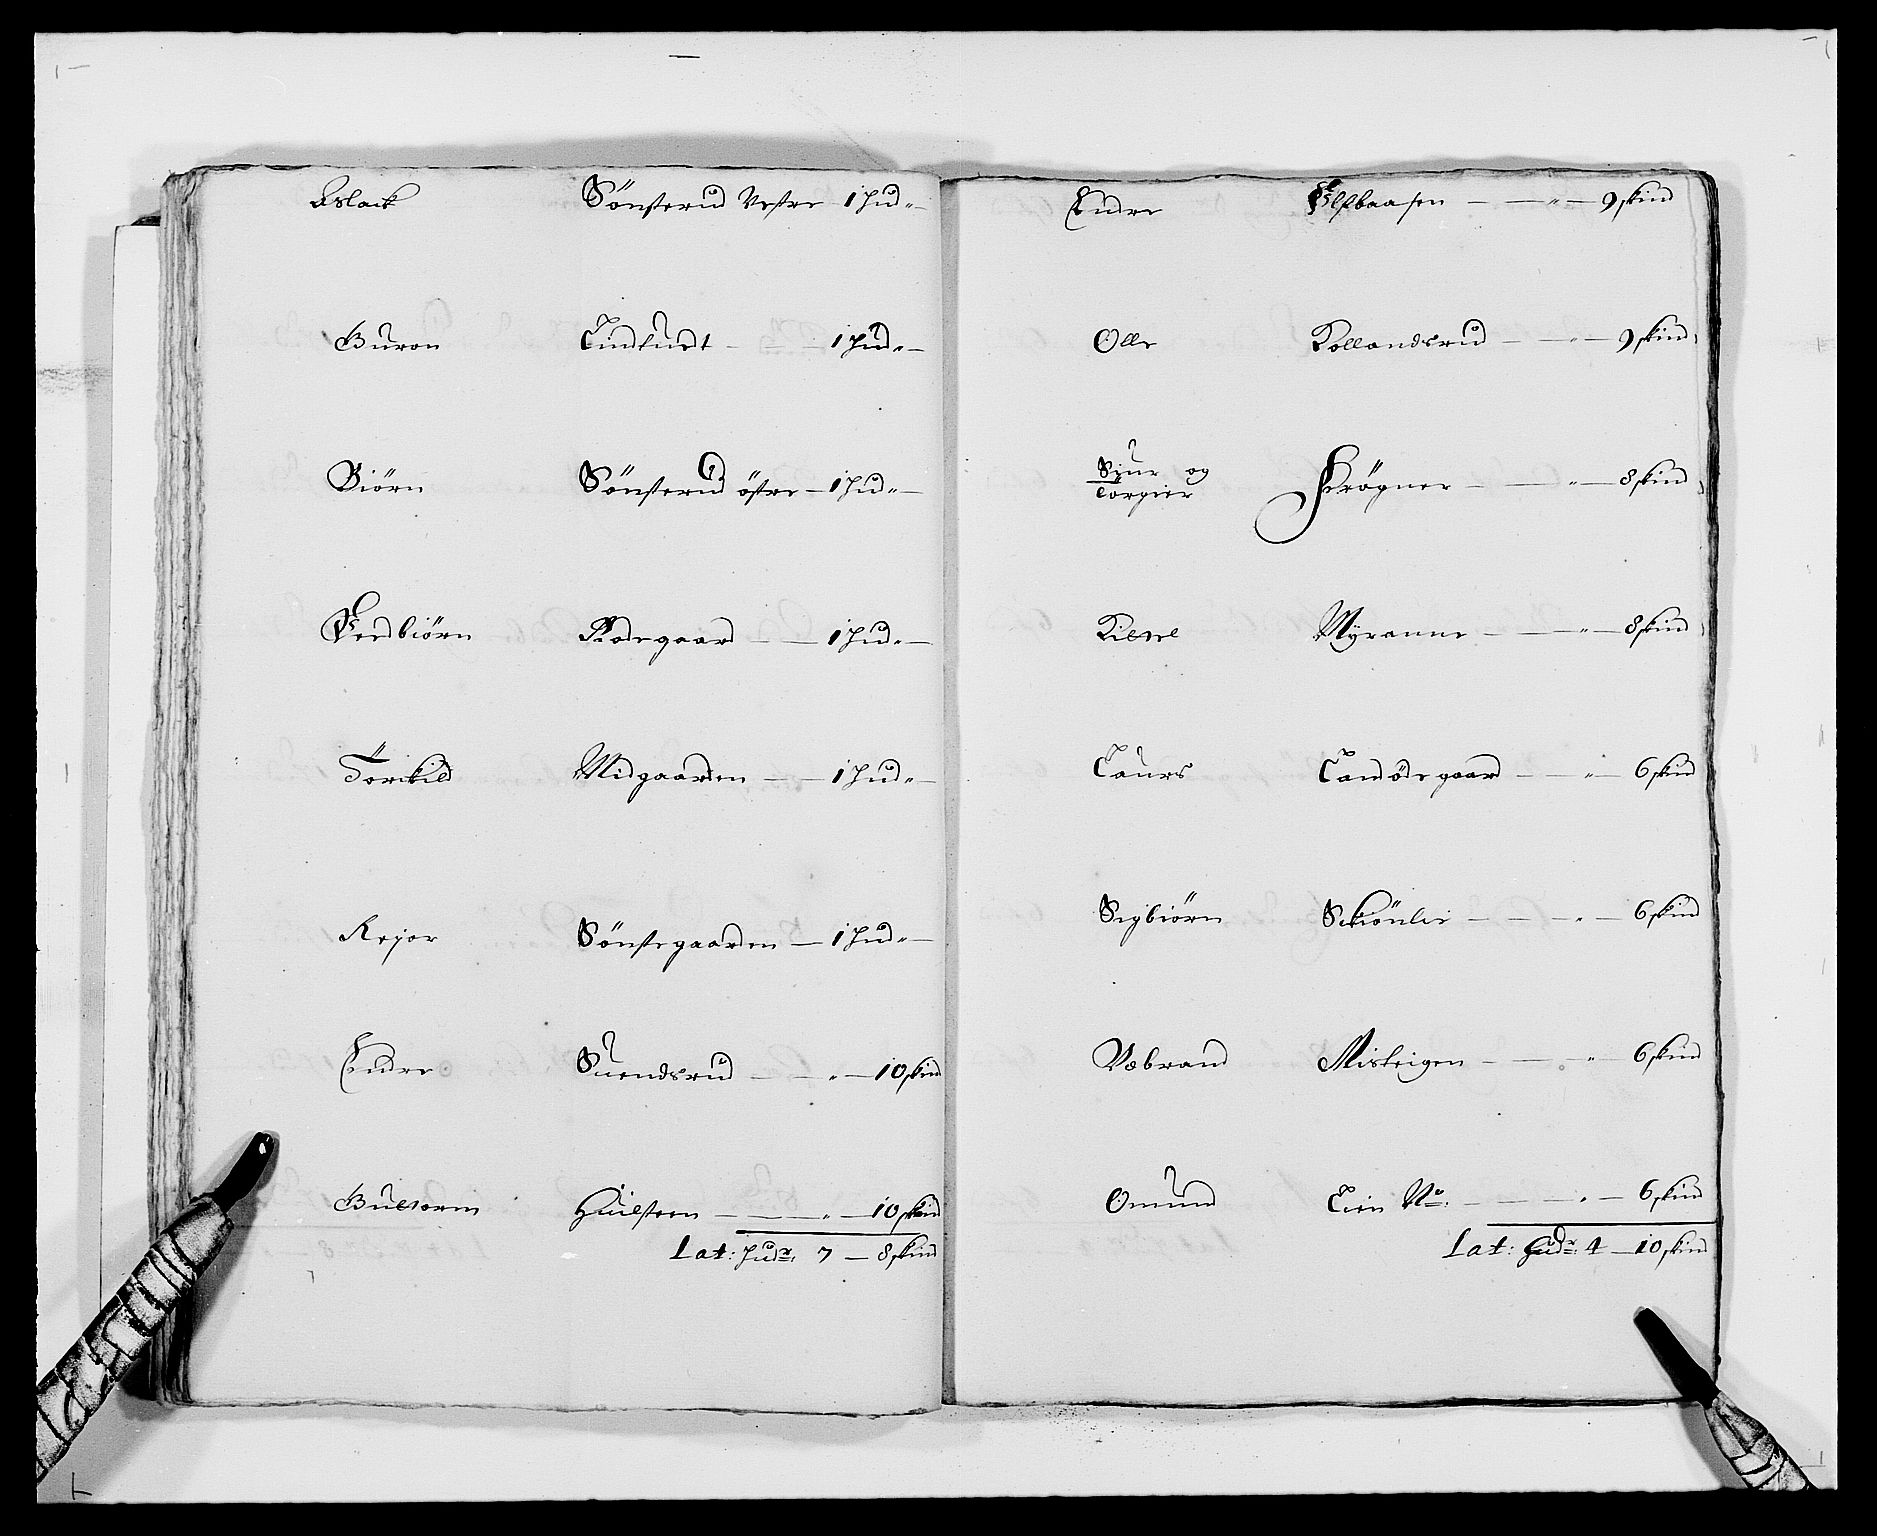 Aslack Sönsterud Vestre 1 hud "
Guron Tindludt 1 hud "
Biörn Sönsterud östre 1 hud "
Herbiörn Rodegaard 1 hud "
Torkild Midgaarden 1 hud "
Rejor Sönstegaarden 1 hud "
Endre Suendsrud " 10 skind
Gultorm Huilsteen " 10 skind
Lat: hudr: 7 8 skind
Endre Elfbaasen " 9 skind
Olle Rollandsrud " 9 skind
Sjur og
Torgier Frögner " 8 skind
Kittel Myranne " 8 skind
Laurs Landödegaard " 6 skind
Sigbiörn Skiönlie " 6 skind
Vebrand Misteigen " 6 skind
Omund Lien No: " 6 skind
Lat: hudr: 4 10 skind